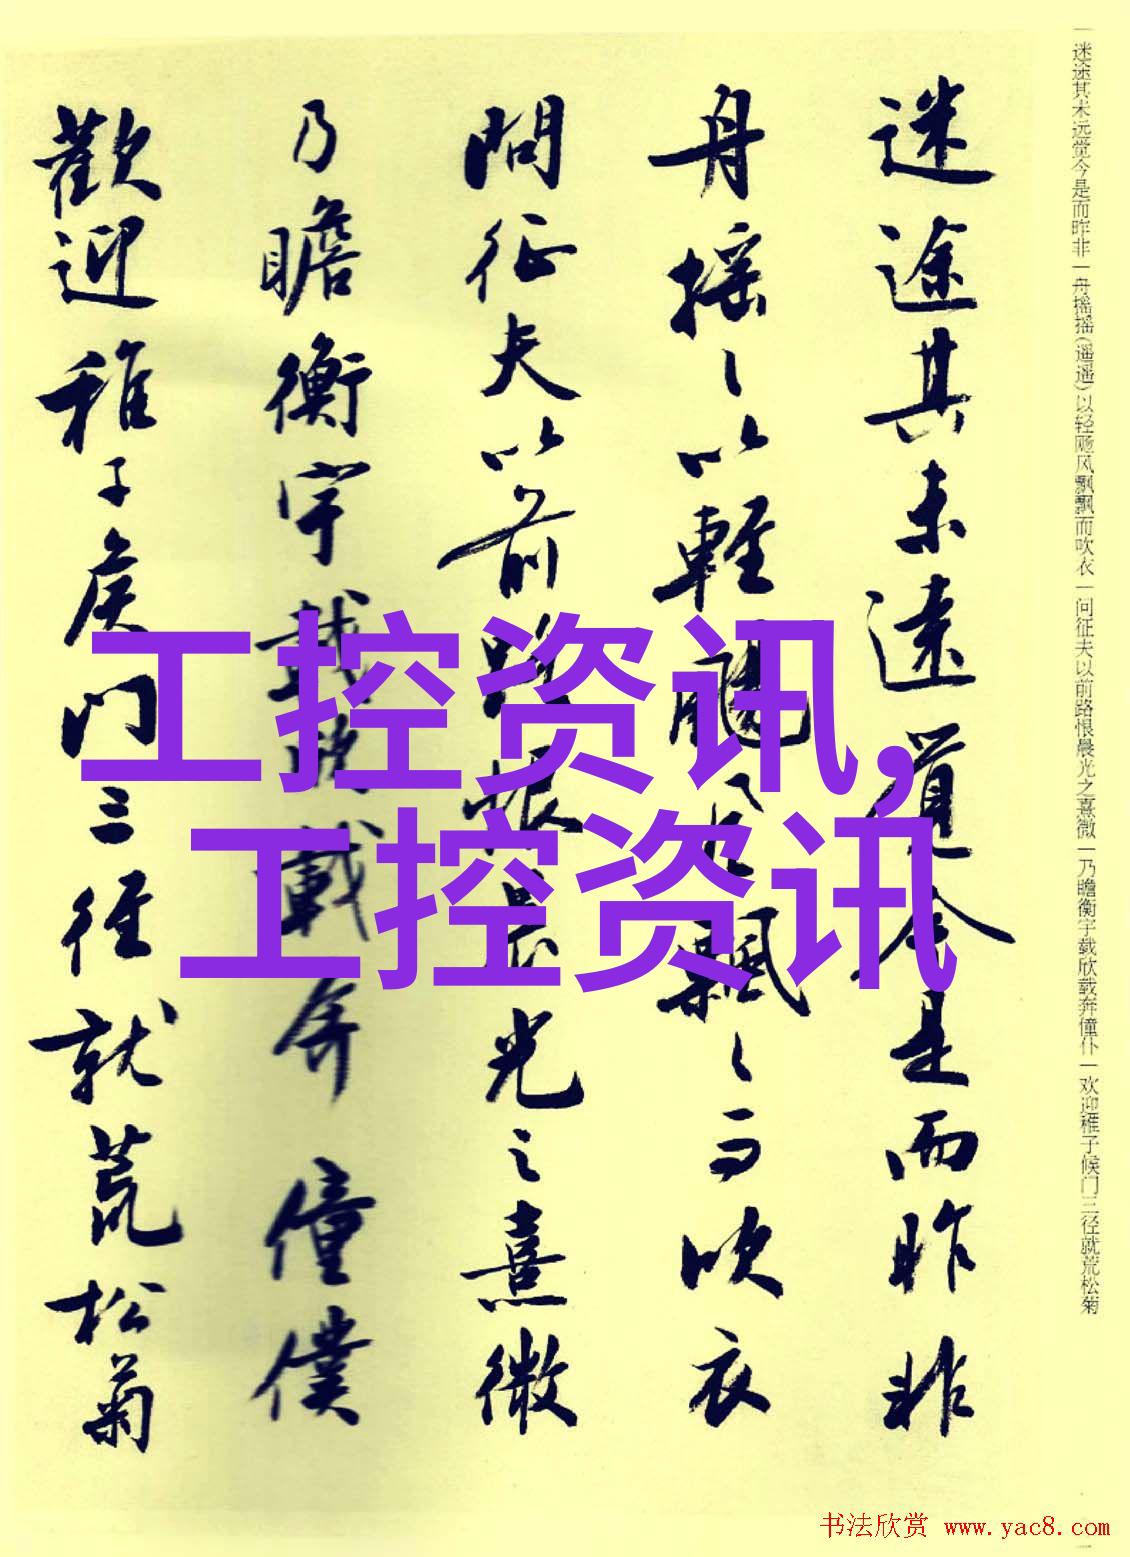 迷途其未远觉今是而昨非一舟摇摇(遥遥)以轻飏风飘飘而吹衣一问征夫以前路恨晨光之熹微一乃瞻衡宇载欣载奔僮仆一欢迎稚子候门三径就荒松菊
迷途其未遠覺今是而昨非
舟摇〻以輕颺風飄〻而吹衣
問征夫以前路恨晨光之熹微
乃瞻衡宇載欣載奔僮僕
歡迎稚子候門三徑就荒松菊
工控资讯,
工控资讯
书法欣赏 www.yac8.com